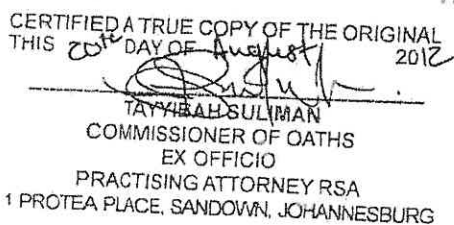 CERTIFIED A TRUE COPY OF THE ORIGINAL
THIS 20th DAY OF August 2012
TAYYIBAH SULIMAN
COMMISSIONER OF OATHS
EX OFFICIO
PRACTISING ATTORNEY RSA
1 PROTEA PLACE, SANDOWN, JOHANNESBURG